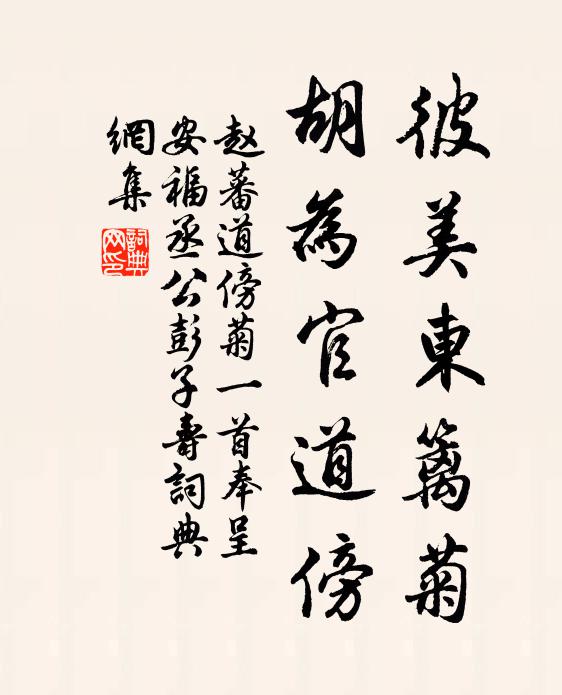 彼美東籬菊
胡為官道傍
赵蕃道傍菊一首奉呈
安福丞公彭子壽詞典
網集
詞典
网印